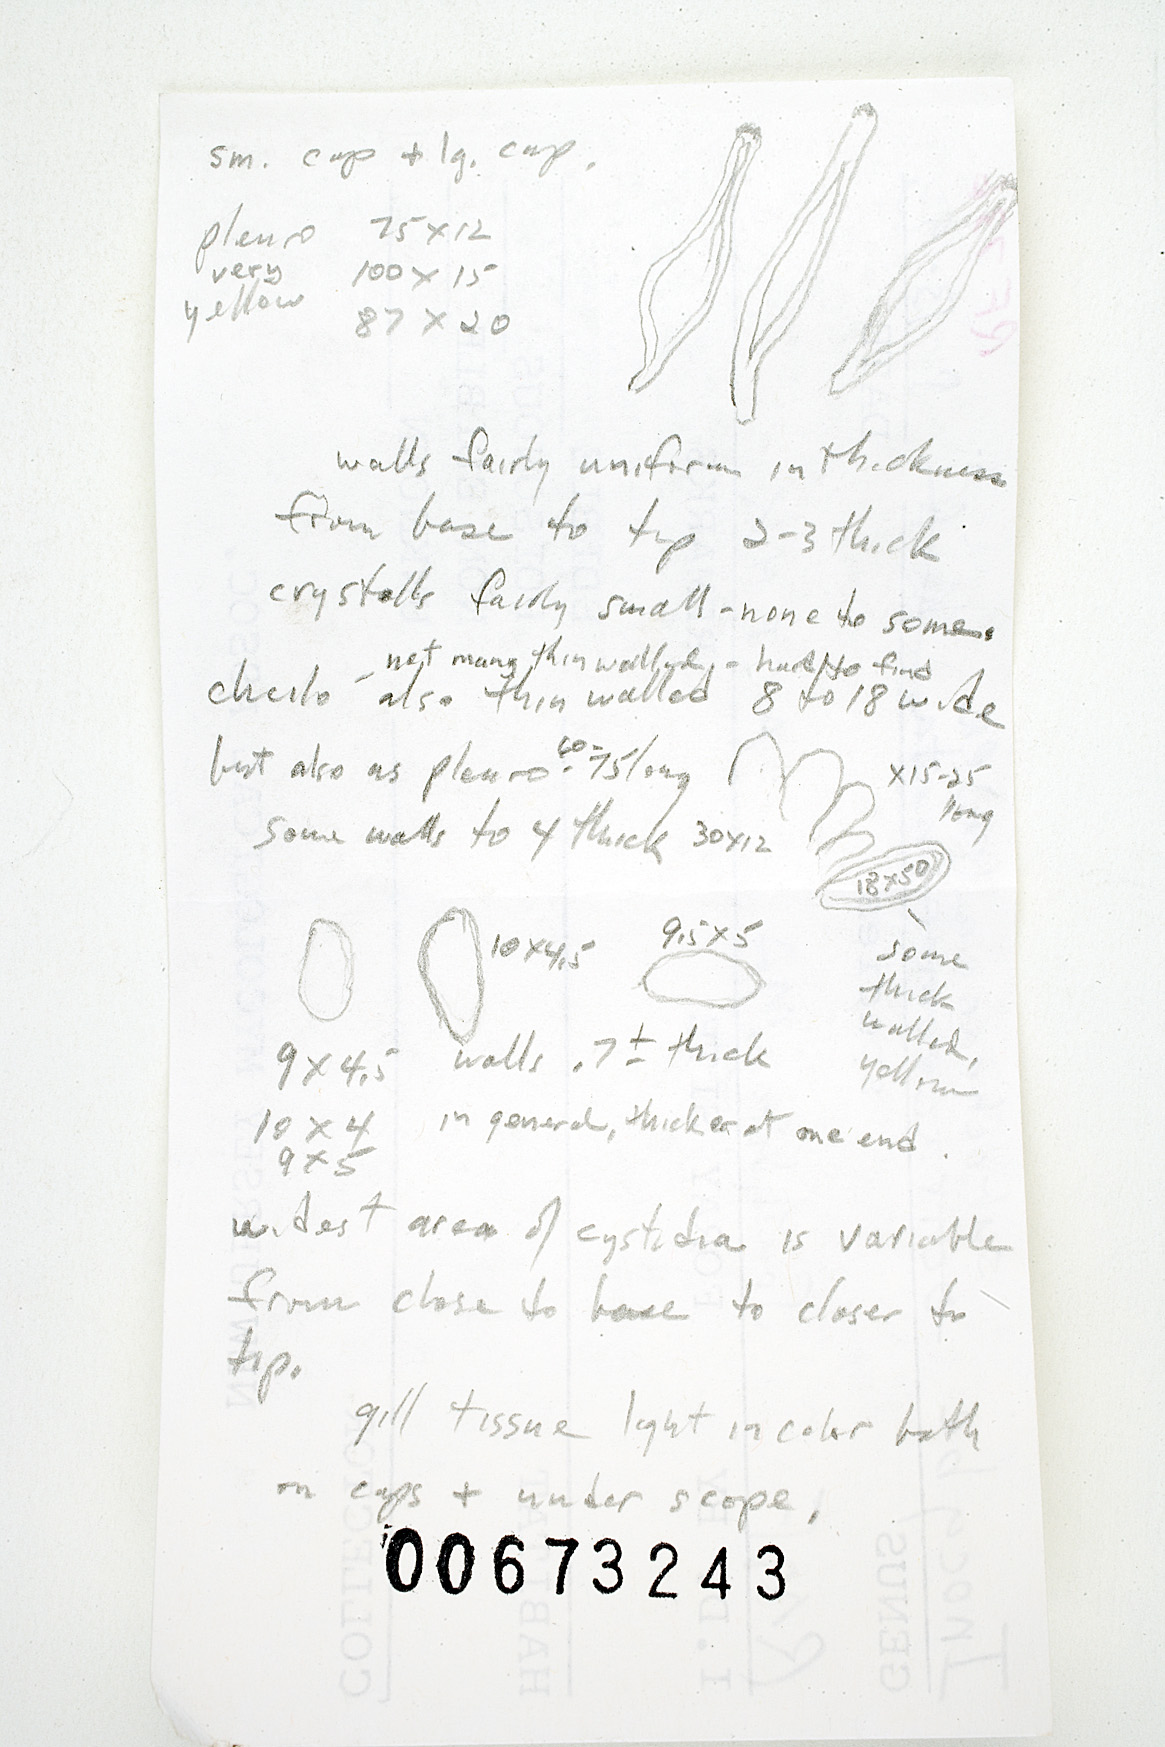 sm. cap + lg. cap.
pleuro 75 x 12
very 100 x 15
yellow 87 x 20
walls fairly uniform in thickness
from base to tip 2-3 thick
crystalls fairly small - none to some.
not many thin walled - hard to find
cheilo - also thin walled 8 to 18 wide
but also as pleuro 60-75 long
x15-25
long
some walls to 4 thick 30x12
18x50
some
thick
walled,
yellow
10x4.5
9.5x5
9 x 4.5 walls .7 ± thick
10 x 4 in general, thicker at one end.
9 x 5
widest area of cystidia is variable
from close to base to closer to
tip.
gill tissue light in color both
on caps + under scope.
00673243